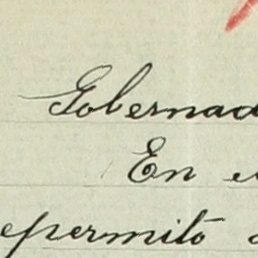 Gobernad
En e
epermitó